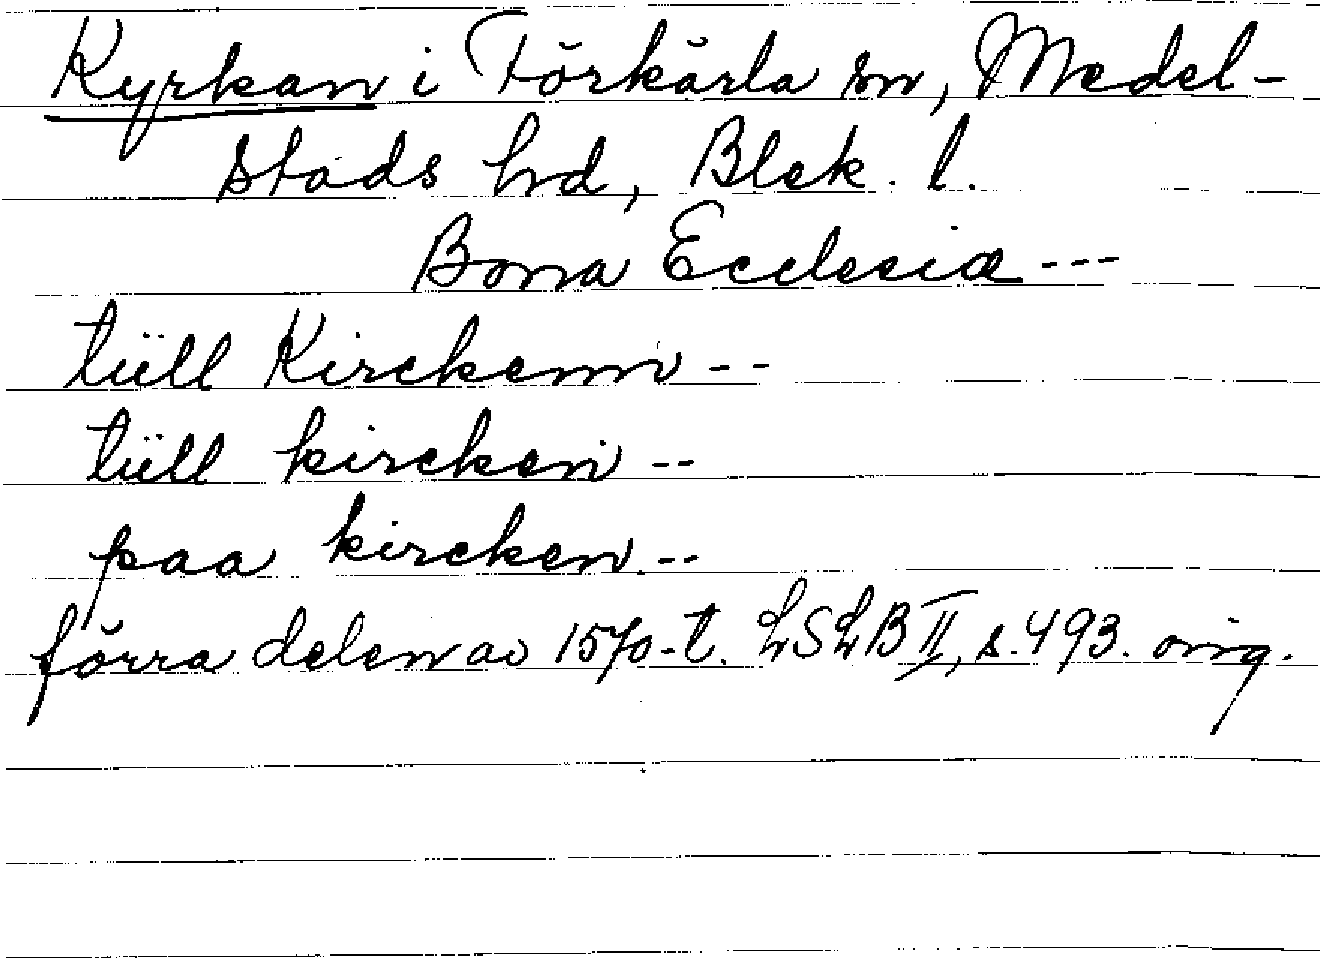 Kyrkan i Förkärla sn, Medel-
stads hrd, Blek. l.
Bona Ecclesiæ ---
tüll Kirckenn --
tüll kircken --
paa kircken --
förra delen av 1570-t. LSLB II, s. 493. orig.